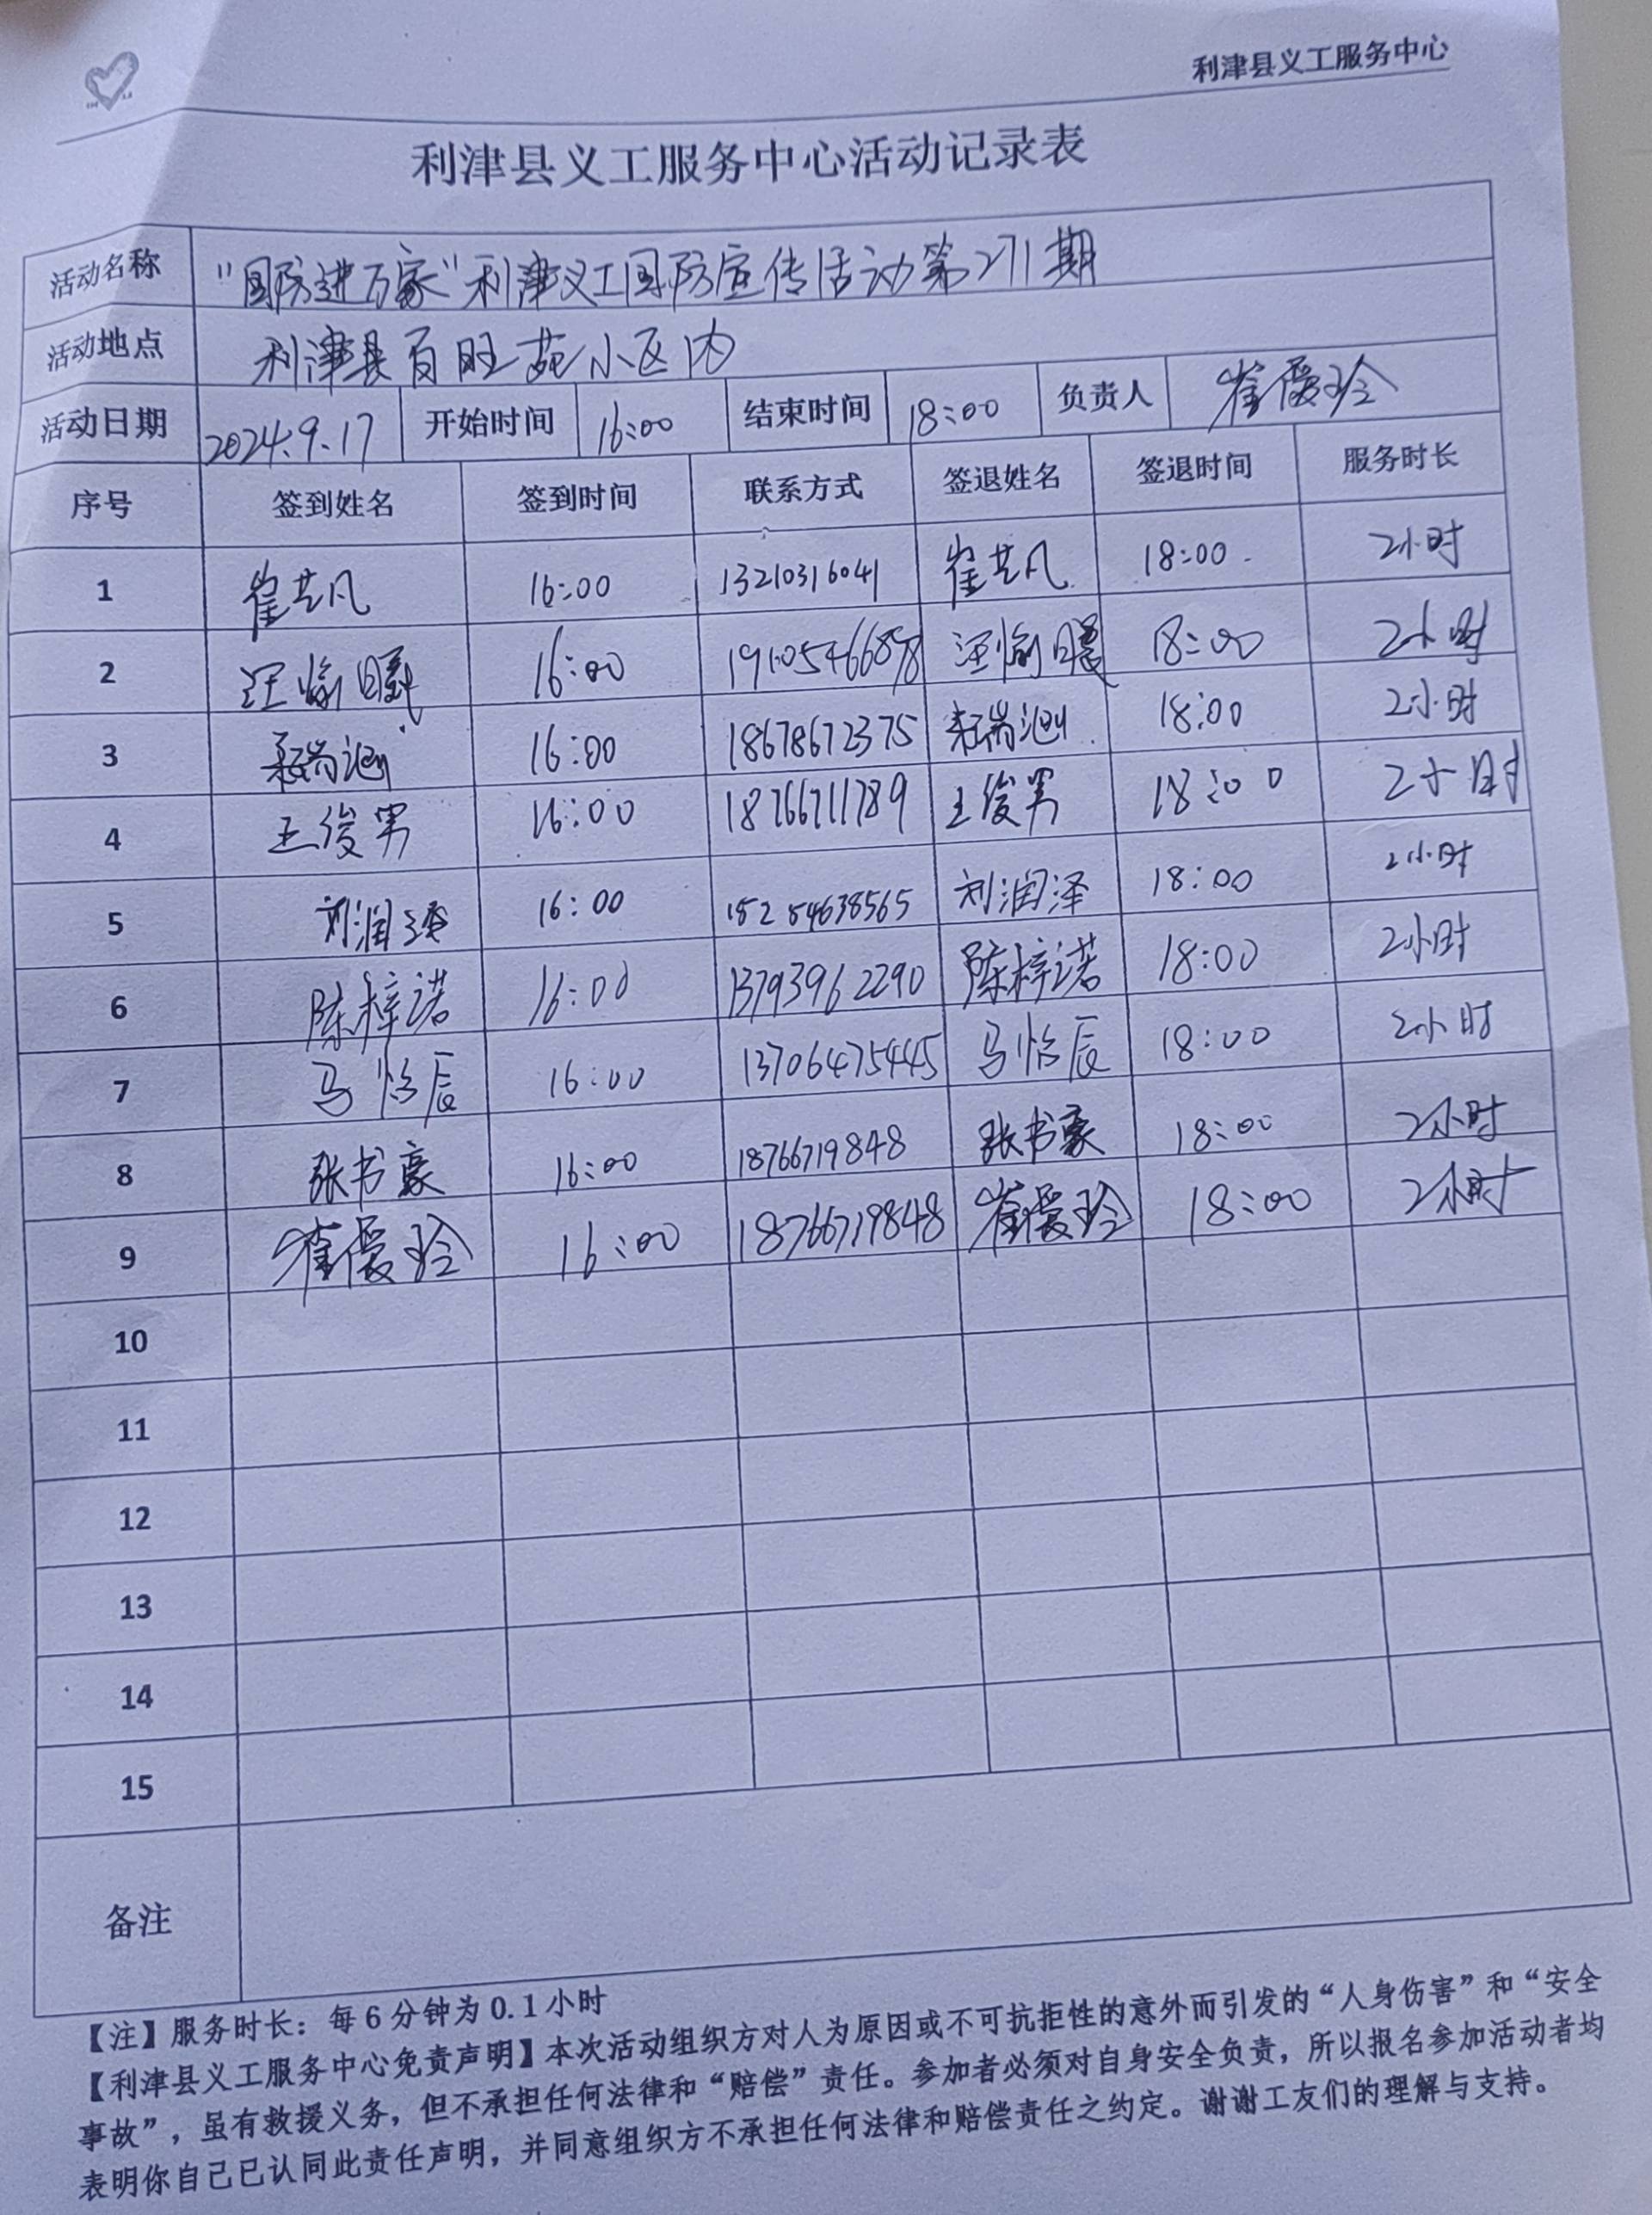 利津县义工服务中心
利津县义工服务中心活动记录表
活动名称 “国防进万家”利津义工国防宣传活动第271期
活动地点 利津县百旺苑小区内
活动日期 2024.9.17 开始时间 16:00 结束时间 18:00 负责人 崔爱玲
序号 签到姓名 签到时间 联系方式 签退姓名 签退时间 服务时长
1 崔艺凡 16:00 13210316041 崔艺凡 18:00 2小时
2 汪愉曦 16:00 汪愉 18:00 2小时
3 瑞涵 16:00 18678672375 瑞涵 18:00 2小时
4 王俊男 16:00 18766711789 王俊男 18:00 2小时
5 刘润泽 16:00 15254638565 刘润泽 18:00 2小时
6 陈梓诺 16:00 13793962290 陈梓诺 18:00 2小时
7 马怡辰 16:00 13706475445 马怡辰 18:00 2小时
8 张书豪 16:00 18766719848 张书豪 18:00 2小时
9 崔爱玲 16:00 18766719848 崔爱玲 18:00 2小时
10
11
12
13
14
15
备注
【注】服务时长：每6分钟为0.1小时
【利津县义工服务中心免责声明】本次活动组织方对人为原因或不可抗拒性的意外而引发的“人身伤害”和“安全
事故”，虽有救援义务，但不承担任何法律和“赔偿”责任。参加者必须对自身安全负责，所以报名参加活动者均
表明你自己已认同此责任声明，并同意组织方不承担任何法律和赔偿责任之约定。谢谢工友们的理解与支持。